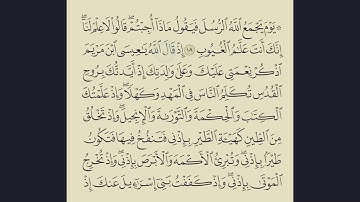 ۞ يَوۡمَ يَجۡمَعُ ٱللَّهُ ٱلرُّسُلَ فَيَقُولُ مَاذَآ أُجِبۡتُمۡۖ قَالُواْ لَا عِلۡمَ لَنَآۖ
إِنَّكَ أَنتَ عَلَّٰمُ ٱلۡغُيُوبِ ١٠٩ إِذۡ قَالَ ٱللَّهُ يَٰعِيسَى ٱبۡنَ مَرۡيَمَ
ٱذۡكُرۡ نِعۡمَتِي عَلَيۡكَ وَعَلَىٰ وَٰلِدَتِكَ إِذۡ أَيَّدتُّكَ بِرُوحِ
ٱلۡقُدُسِ تُكَلِّمُ ٱلنَّاسَ فِي ٱلۡمَهۡدِ وَكَهۡلٗاۖ وَإِذۡ عَلَّمۡتُكَ
ٱلۡكِتَٰبَ وَٱلۡحِكۡمَةَ وَٱلتَّوۡرَىٰةَ وَٱلۡإِنجِيلَۖ وَإِذۡ تَخۡلُقُ
مِنَ ٱلطِّينِ كَهَيۡـَٔةِ ٱلطَّيۡرِ بِإِذۡنِي فَتَنفُخُ فِيهَا فَتَكُونُ
طَيۡرَۢا بِإِذۡنِيۖ وَتُبۡرِئُ ٱلۡأَكۡمَهَ وَٱلۡأَبۡرَصَ بِإِذۡنِيۖ وَإِذۡ تُخۡرِجُ
ٱلۡمَوۡتَىٰ بِإِذۡنِيۖ وَإِذۡ كَفَفۡتُ بَنِيٓ إِسۡرَٰٓءِيلَ عَنكَ إِذۡ